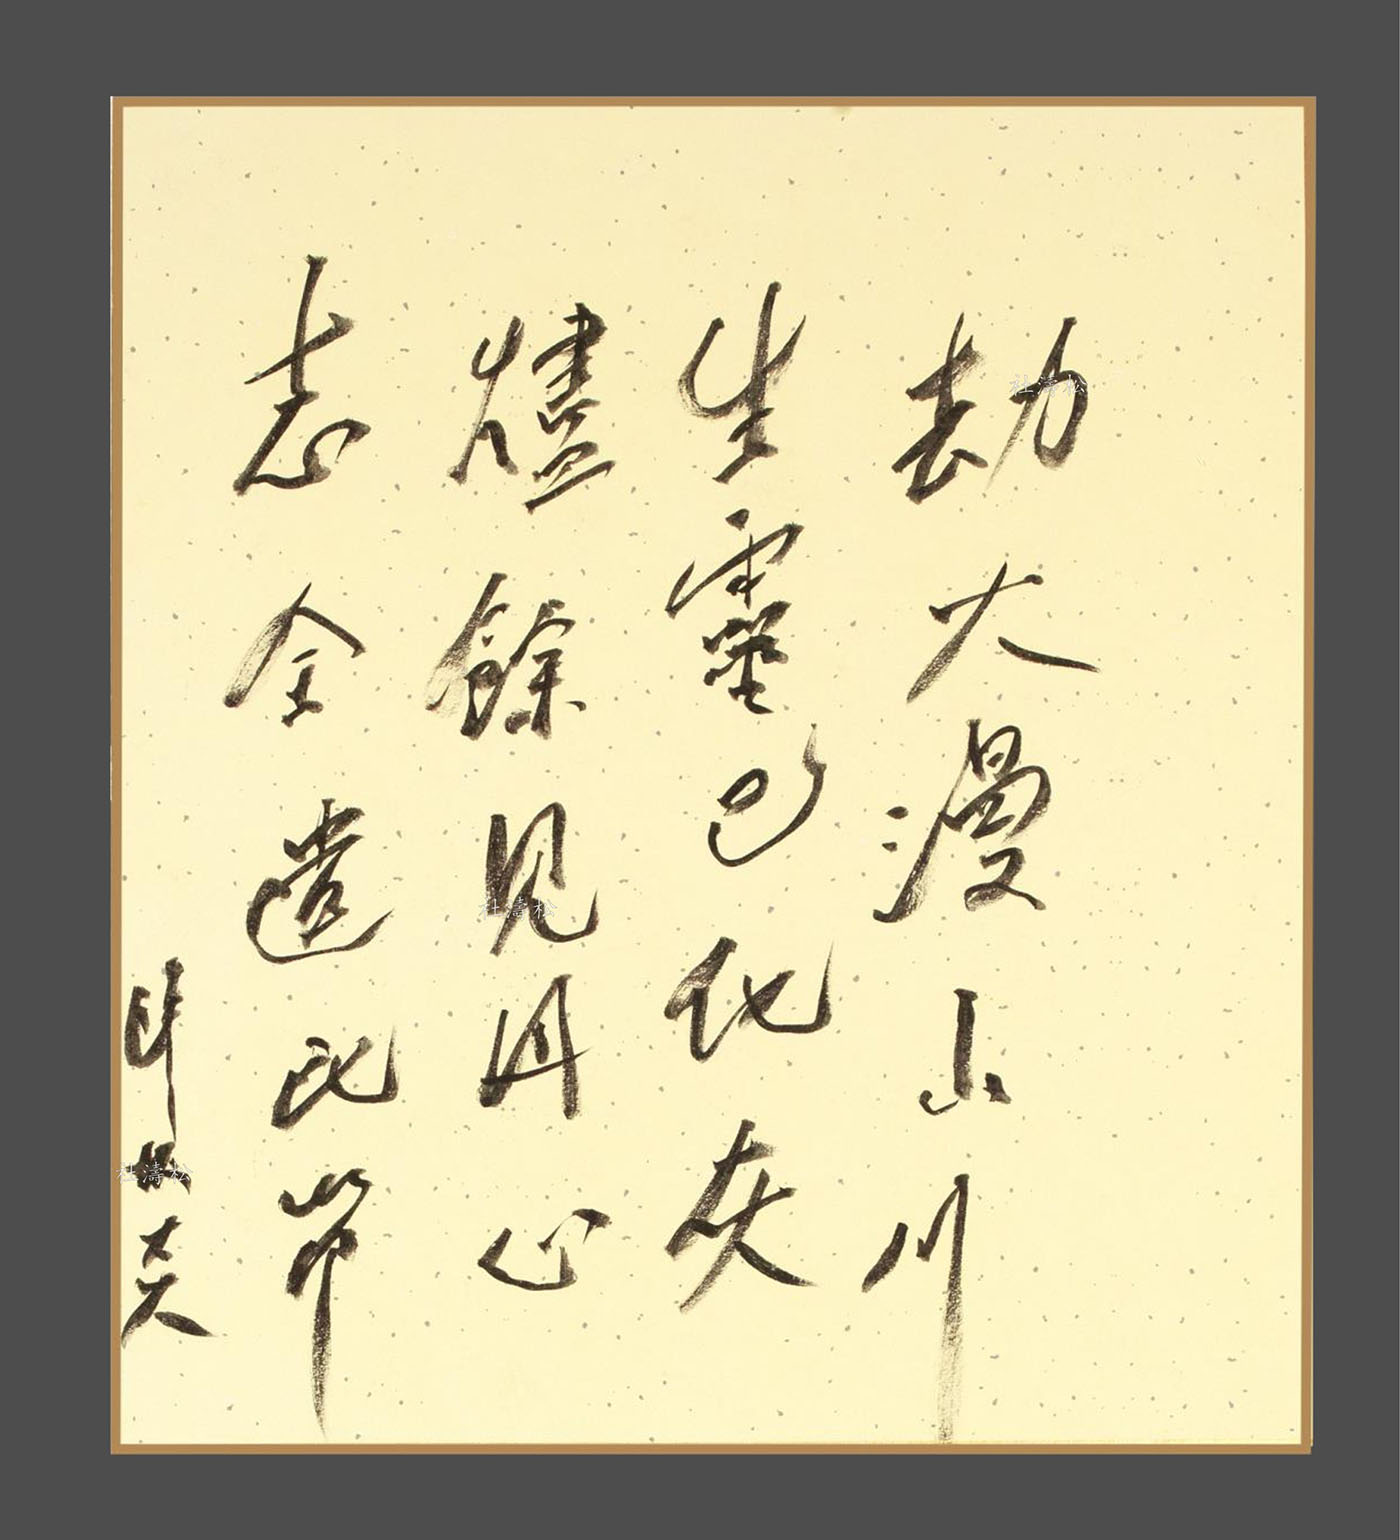 劫火漫山川
生靈已化灰
燼餘見丹心
志全遺民節
杜濤松
杜濤松
杜濤松